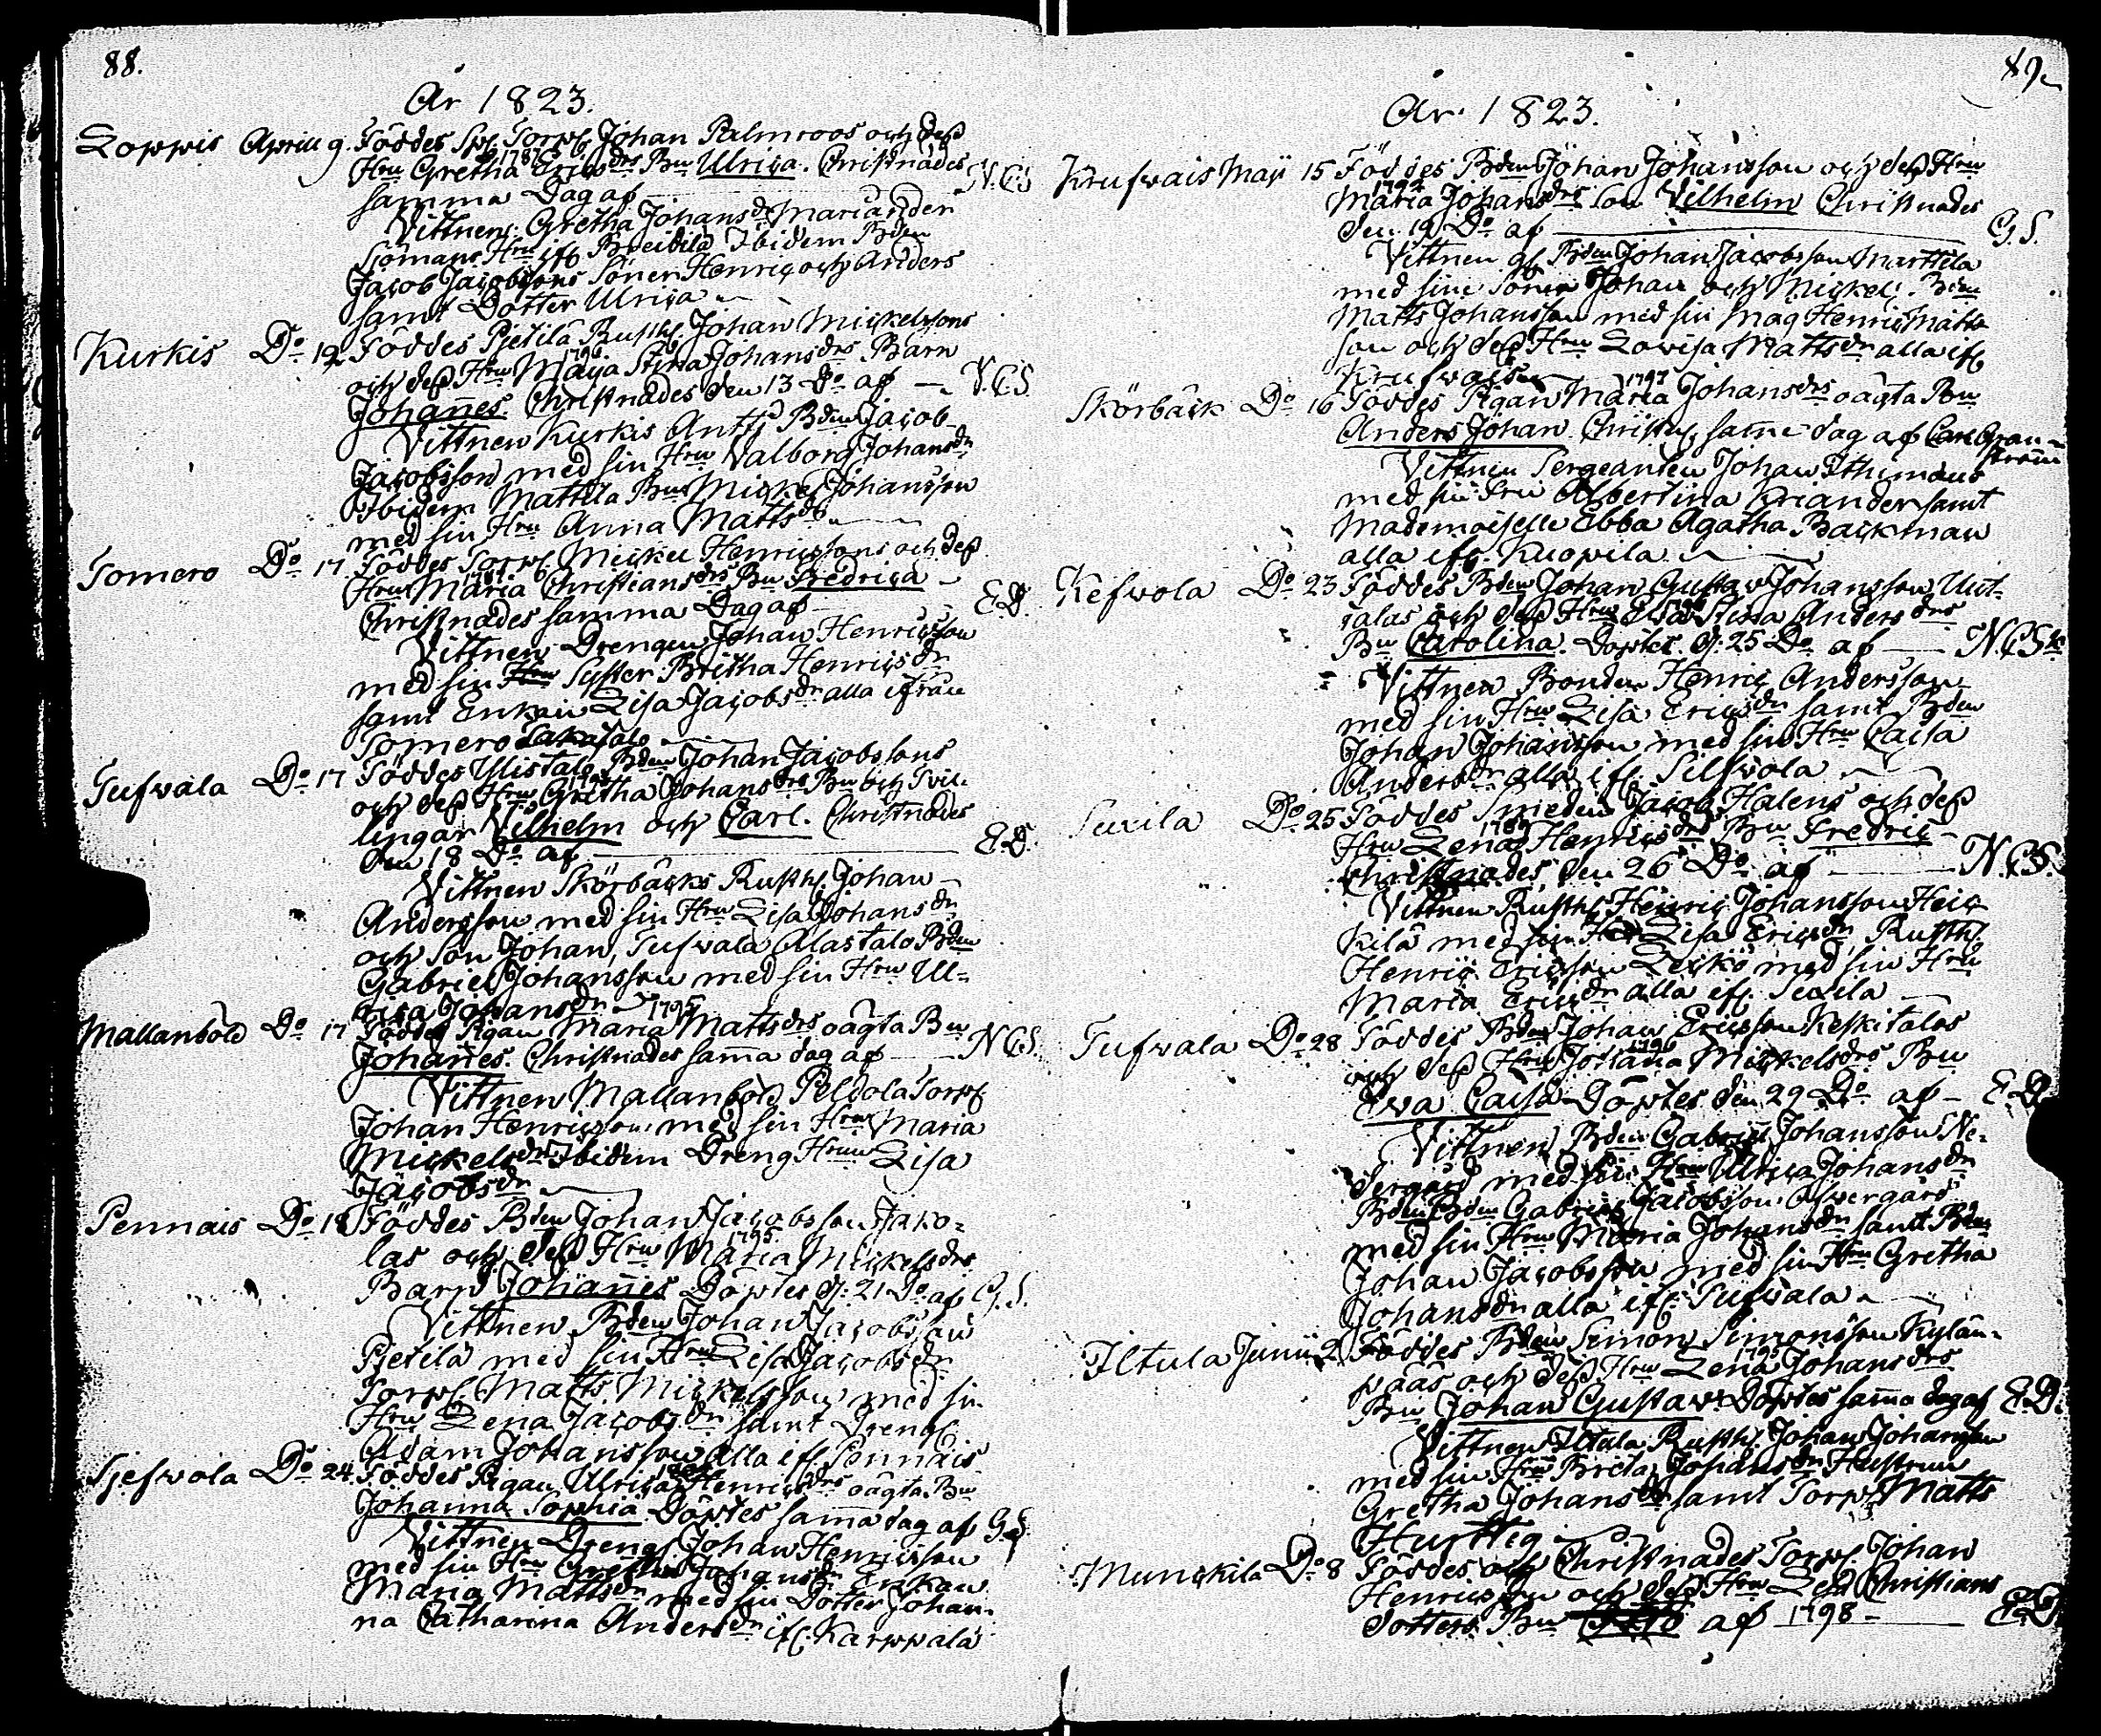 88.
År 1823.
Loppis Aprill 9. Föddes Torp. Johan Palmroos och dess
Hru Gretha 1781 Ericsdrs Bn Ulrica. Christnades
samma Dag af N.C.S
Vittnen: Gretha Johansdr Mariander
Hru ifr. Ibidem Bden
Jacob Jacobssons Söner Henric och Anders
samt Dotter Ulrica
Kurkis Do 12 Föddes Pjetilä Rusth. Johan Mickelssons
och dess Hru 1796 Maja Stina Johansdrs Barn
Johañes Christnades den 13 Do af N.C.S.
Vittnen Kurkis Antti Bden Jacob
Jacobsson med sin Hru Valborg Johansdr
Ibidem Mattila Bns Mickel Johansson
med sin Hru Anna Mattsdr
Somero Do 17. Föddes Torp. Mickel Henricssons och dess
Hrus Maria Christiansdrs Bn Fredrica
Christnades samma Dag af E.D.
Vittnen Drengen Johan Henricsson
med sin Syster Britha Henricsdr
samt Enkan Lisa Jacobsdr alla ifrån
Somero
Tufwala Do 17 Föddes Ylistalo Bden Johan Jacobssons
och dess Hru Gretha Johansdrs Bn och Tvil-
lingar Vilhelm och Carl. Christnades
den 18 Do af E.D.
Vittnen Skörbäcks Rusth. Johan
Andersson med sin Hru Lisa Johansdr
och Son Johan, Tufwala Alastalo Bden
Gabriel Johansson med sin Hru Ul-
rica Johansdr
Mallanböld Do 17 Föddes Pigan 1795 Maria Mattsdrs oägta Bn
Johañes. Christnades sam̃a dag af N.C.S.
Vittnen Mallanböld Peldola Torp.
Johan Henricsson med sin Hru Maria
Mickelsdr Ibidem Dreng Hrun Lisa
Jacobsdr
Pennais Do 18 Föddes Bden Johan Jacobsson Jako-
las och dess Hru 1795 Maria Mickelsdrs
Barn Johañes Döptes d. 21 Do af G.S.
Vittnen Bden Johan Jacobsson
Pjetilä med sin Hru Lisa Jacobsdr
Torp. Matts Mickelsson med sin
Hru Lena Jacobsdr samt Dreng.
Adam Johansson alla if. Pennais
Sjefwola Do 24. Föddes Pigan Ulrica Henricsdrs oägta Bn
Johanna Sophia Döptes sam̃a dag af G.S.
Vittnen Dreng. Johan Henricsson
med sin Hru Gretha Johansdr Enkan
Maria Mattsdr med sin Dotter Johan-
na Catharina Andersdr if. Karppala
89.
År 1823.
Krufwais Maji 15 Föddes Bden Johan Johansson och dess Hru
1792 Maria Johansdrs Son Vilhelm Christnades
den 19 Do af G.S.
Vittnen Bden Johan Jacobsson Marttila
med sine Söner Johan och Mickel. Bden
Matts Johansson med sin Mag Henric Matts-
son och dess Hru Lovisa Mattsdr alla if.
Krufwais
Skörbäck Do 16 Föddes Pigan 1797 Maria Johansdrs oägta Bn
Anders Johan Christn. sam̃e dag af Carl Gran-
ström
Vittnen Sergeanten Johan
med sin Fru Albertina Kriander samt
Mademoiselle Ebba Agatha Backman
alla if. Kuopila
Kefvola Do 23 Föddes Bden Johan Gustav Johansson Uut-
talas och dess Hru Elsa Stina Andersdrs
Bn Carolina. Döptes d. 25 Do af N.C.S.
Vittnen Bonden Henric Andersson
med sin Hru Lisa Ericsdr samt Bden
Johan Johansson med sin Hru Caisa
Andersdr alla if. Silfvola
Suxila Do 25 Föddes Smeden Jacob Halens och dess
Hru 1789 Lena Henricsdrs Bn Fredric
Christnades den 26 Do af N.C.S.
Vittnen Rusth. Henric Johansson Heic-
kilä med sin Hru Lisa Ericsdr, Rusth.
Henric Ericsson Leikö med sin Hru
Maria Ericsdr alla if. Suxila
Tufwala Do 28 Föddes Bden Johan Ericsson Keskitalos
och dess Hru 1796 Johana Mickelsdrs Bn
Eva Caisa Döptes den 29 Do af E.D.
Vittnen Bden Gabriel Johansson Ne-
dergård med sin Hru Ulrica Johansdr
Bden Gabriel Jacobsson Öfwergård
med sin Hru Maria Johansdr samt Bden
Johan Jacobsson med sin Hru Gretha
Johansdr alla if. Tufwala
Iltula Junii 2 Föddes Bden Simon Simonsson Kylän-
pääs och dess Hru 1795 Lena Johansdrs
Bn Johan Gustav Döptes sam̃a dag af E.D.
Vittnen Iltula Rusth. Johan Johansson
med sin Hru Brita Johansdr Hustrun
Gretha Johansdr samt Torp. Matts
Hurttig
Munckila Do 8 Föddes och Christnades Torp. Johan
Henricsson och dess Hru Lisa Christians
dotters Bn af 1798 E.D.